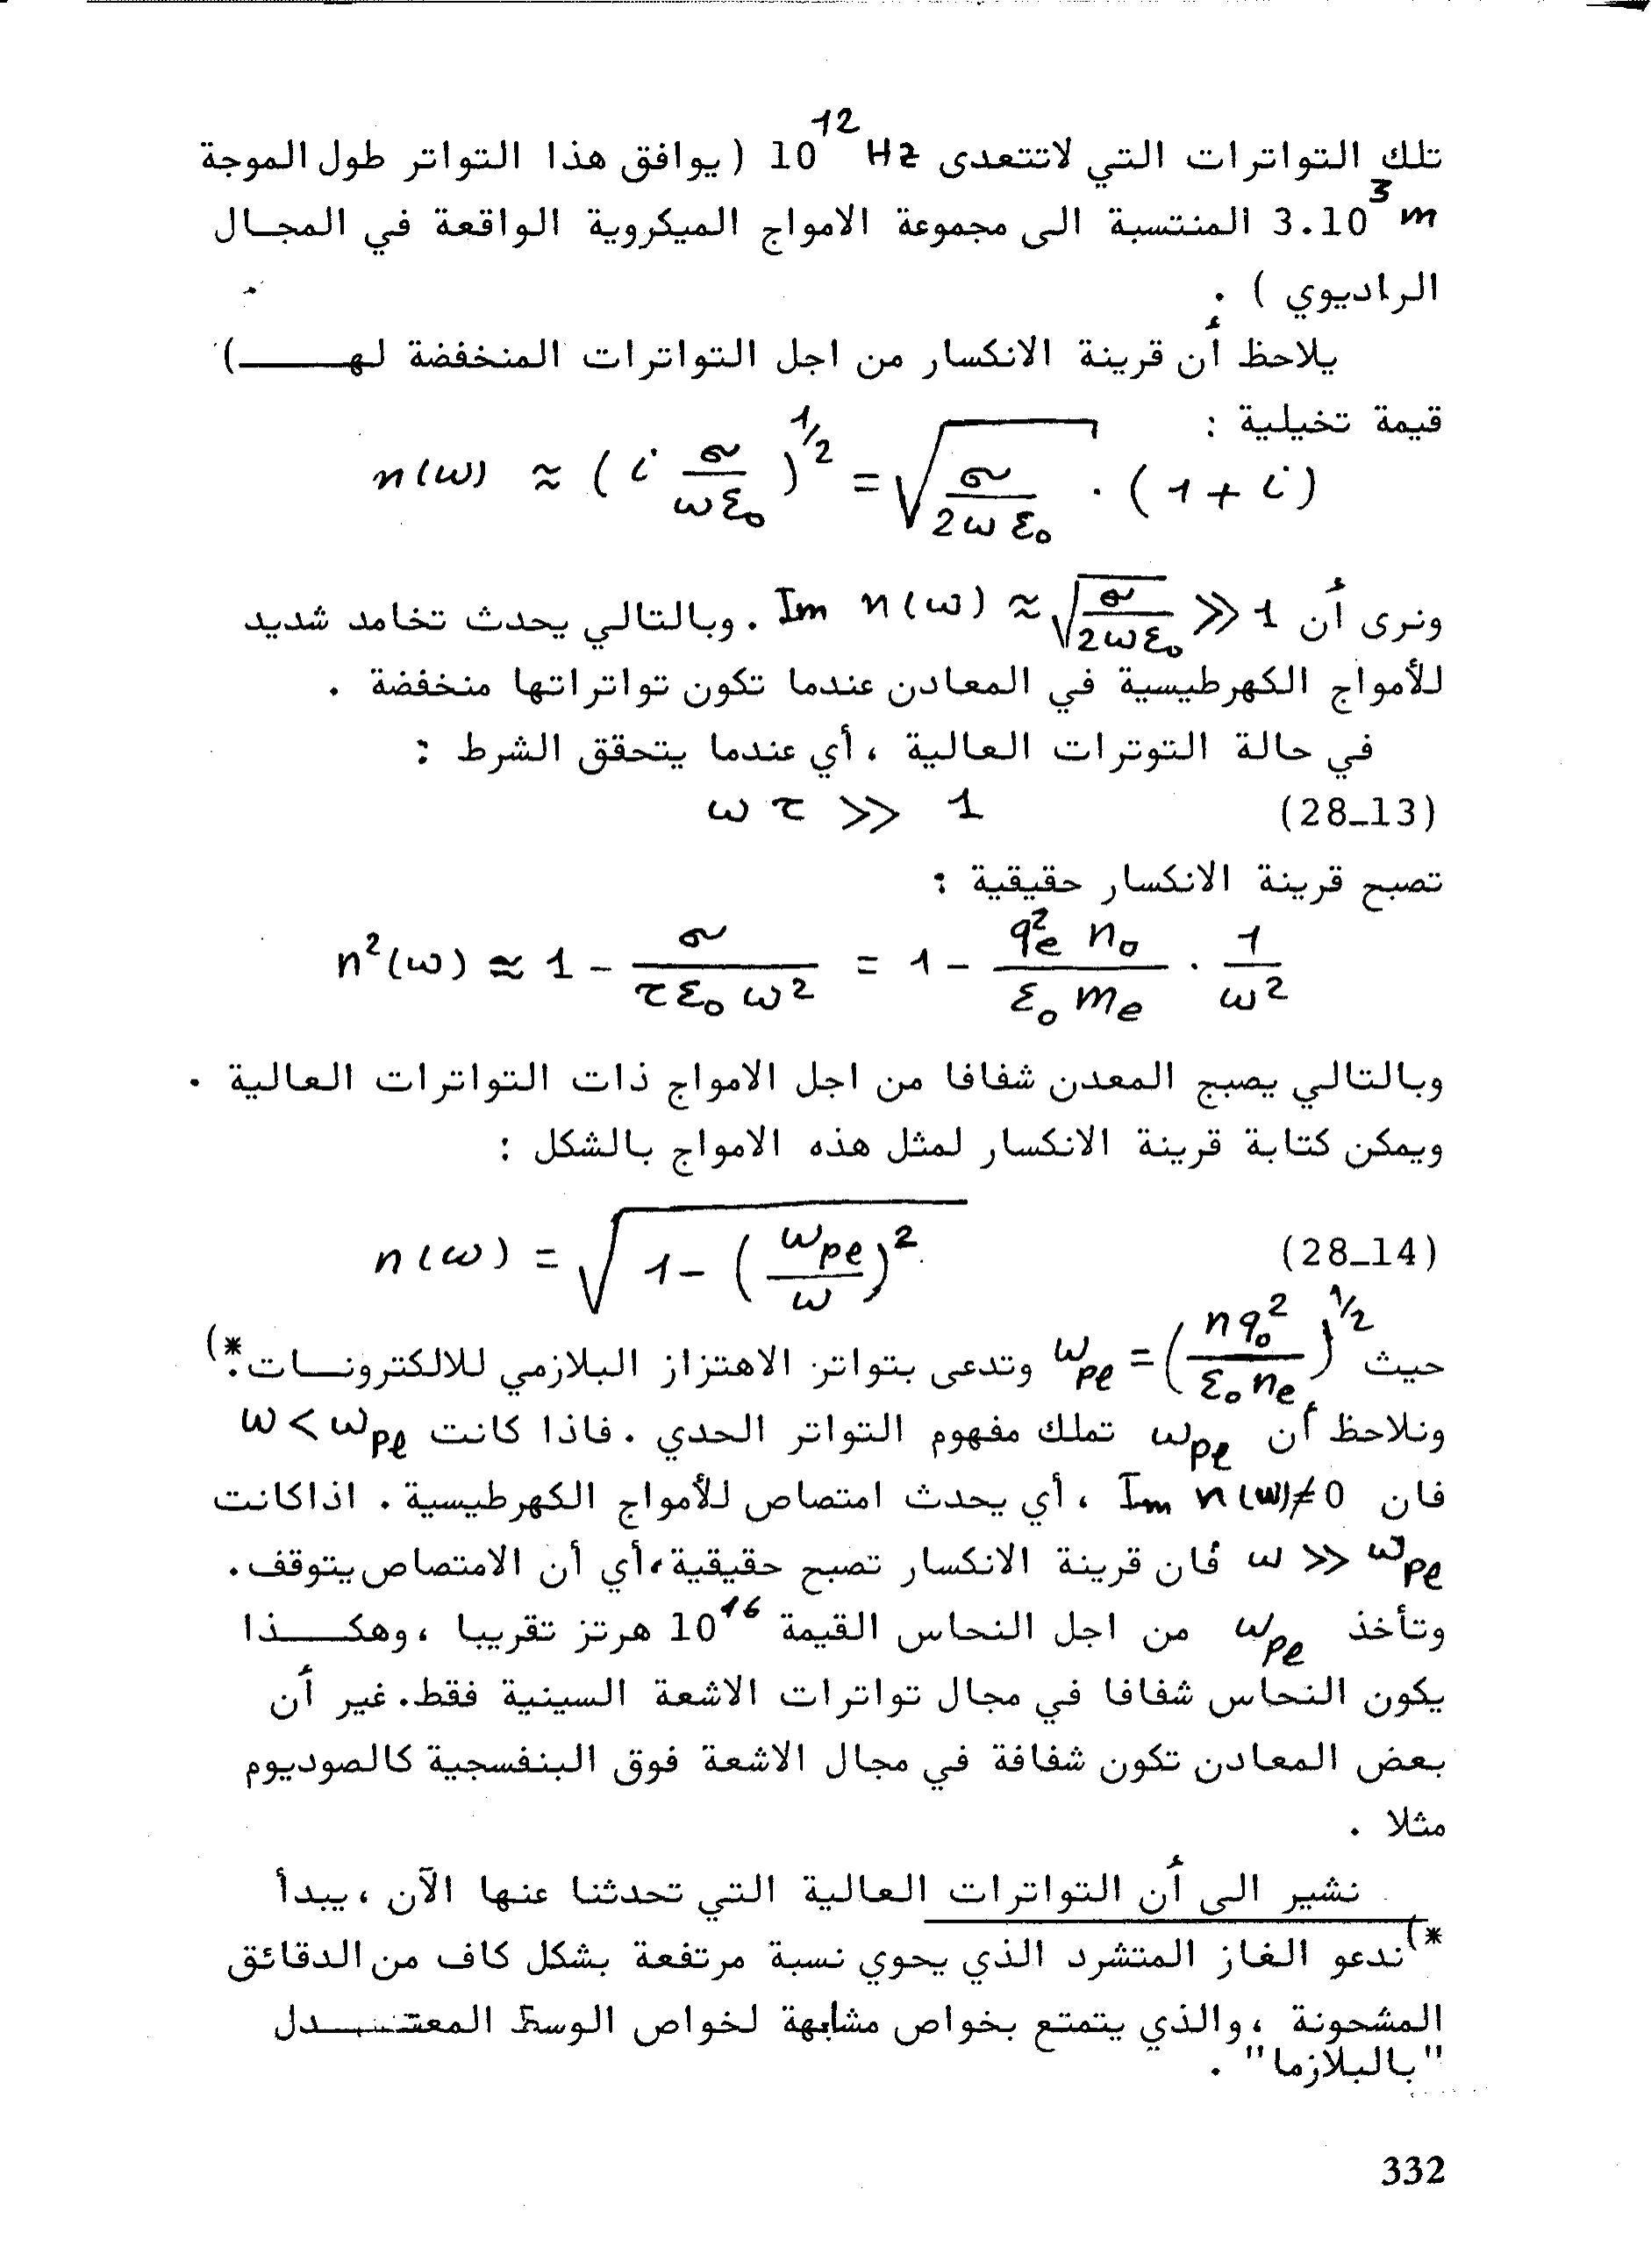 تلك التواترات التي لاتتعدى 10¹² Hz ( يوافق هذا التواتر طول الموجة
3.10³ m المنتسبة الى مجموعة الامواج الميكروية الواقعة في المجـال
الراديوي ) .
يلاحظ أن قرينة الانكسار من اجل التواترات المنخفضة لهـــــا
قيمة تخيلية :
n(ω) ≈ ( i σ/(ωε₀) )^(1/2) = √(σ/(2ωε₀)) . (1+i)
ونرى أن Im n(ω) ≈ √(σ/(2ωε₀)) ≫ 1 . وبالتالي يحدث تخامد شديد
للأمواج الكهرطيسية في المعادن عندما تكون تواتراتها منخفضة .
في حالة التوترات العالية ، أي عندما يتحقق الشرط :
ω τ ≫ 1 (28_13)
تصبح قرينة الانكسار حقيقية :
n²(ω) ≈ 1 - σ/(τε₀ω²) = 1 - (qₑ² n₀)/(ε₀ mₑ) . 1/ω²
وبالتالي يصبح المعدن شفافا من اجل الامواج ذات التواترات العالية .
ويمكن كتابة قرينة الانكسار لمثل هذه الامواج بالشكل :
n(ω) = √(1 - (ω_pe/ω)²) (28_14)
حيث ω_pe = (n q₀²/(ε₀ nₑ))^(1/2) وتدعى بتواتر الاهتزاز البلازمي للالكترونــات.*)
ونلاحظ أن ω_pe تملك مفهوم التواتر الحدي . فاذا كانت ω < ω_pe
فان Im n(ω)≠0 ، أي يحدث امتصاص للأمواج الكهرطيسية . اذاكانت
ω ≫ ω_pe فان قرينة الانكسار تصبح حقيقية،أي أن الامتصاص يتوقف.
وتأخذ ω_pe من اجل النحاس القيمة 10¹⁶ هرتز تقريبا ، وهكـــذا
يكون النحاس شفافا في مجال تواترات الاشعة السينية فقط. غير أن
بعض المعادن تكون شفافة في مجال الاشعة فوق البنفسجية كالصوديوم
مثلا .
نشير الى أن التواترات العالية التي تحدثنا عنها الآن ، يبدأ
*) ندعو الغاز المتشرد الذي يحوي نسبة مرتفعة بشكل كاف من الدقائق
المشحونة ، والذي يتمتع بخواص مشابهة لخواص الوسط المعتـــدل
"بالبلازما" .
332